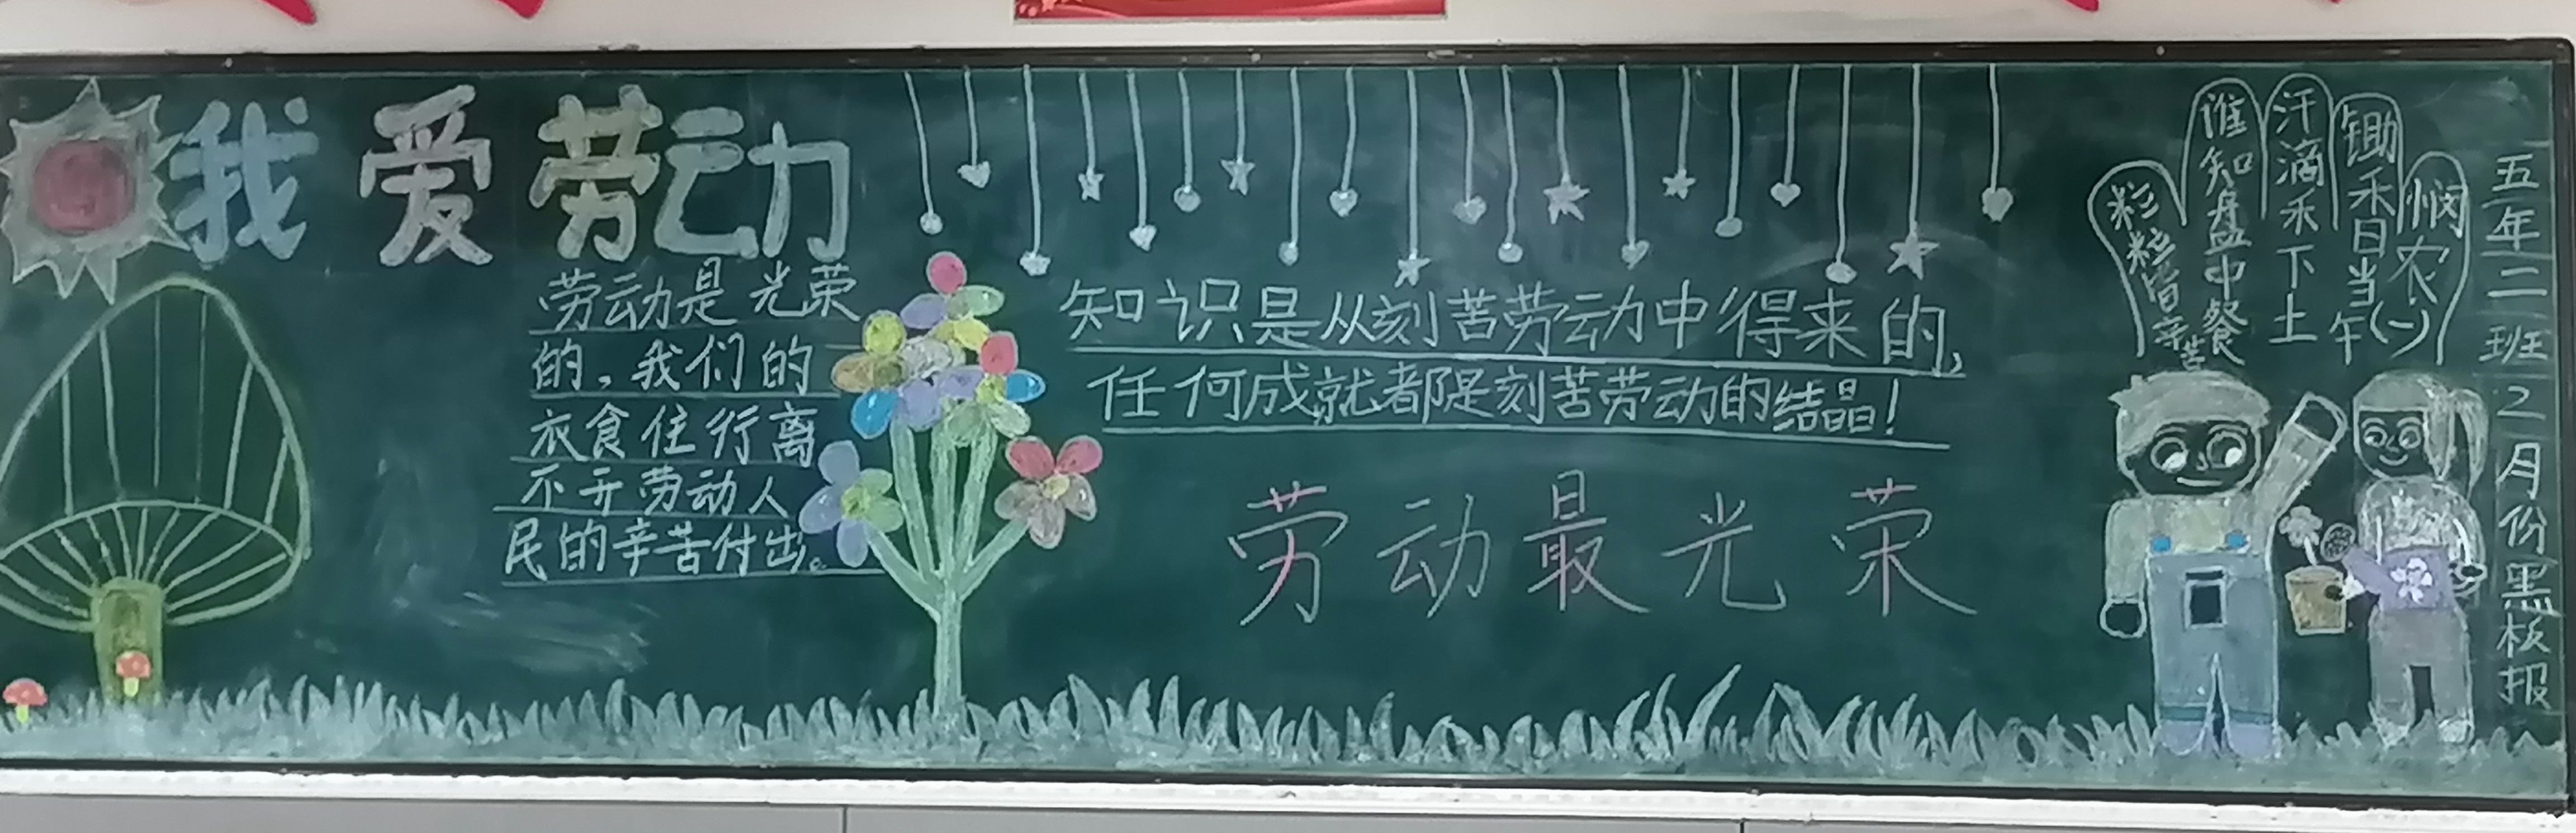 我爱劳动
劳动是光荣
的，我们的
衣食住行离
不开劳动人
民的辛苦付出。
知识是从刻苦劳动中得来的，
任何成就都是刻苦劳动的结晶！
劳动最光荣
悯农(一)
锄禾日当午
汗滴禾下土
谁知盘中餐
粒粒皆辛苦
五年二班2月份黑板报